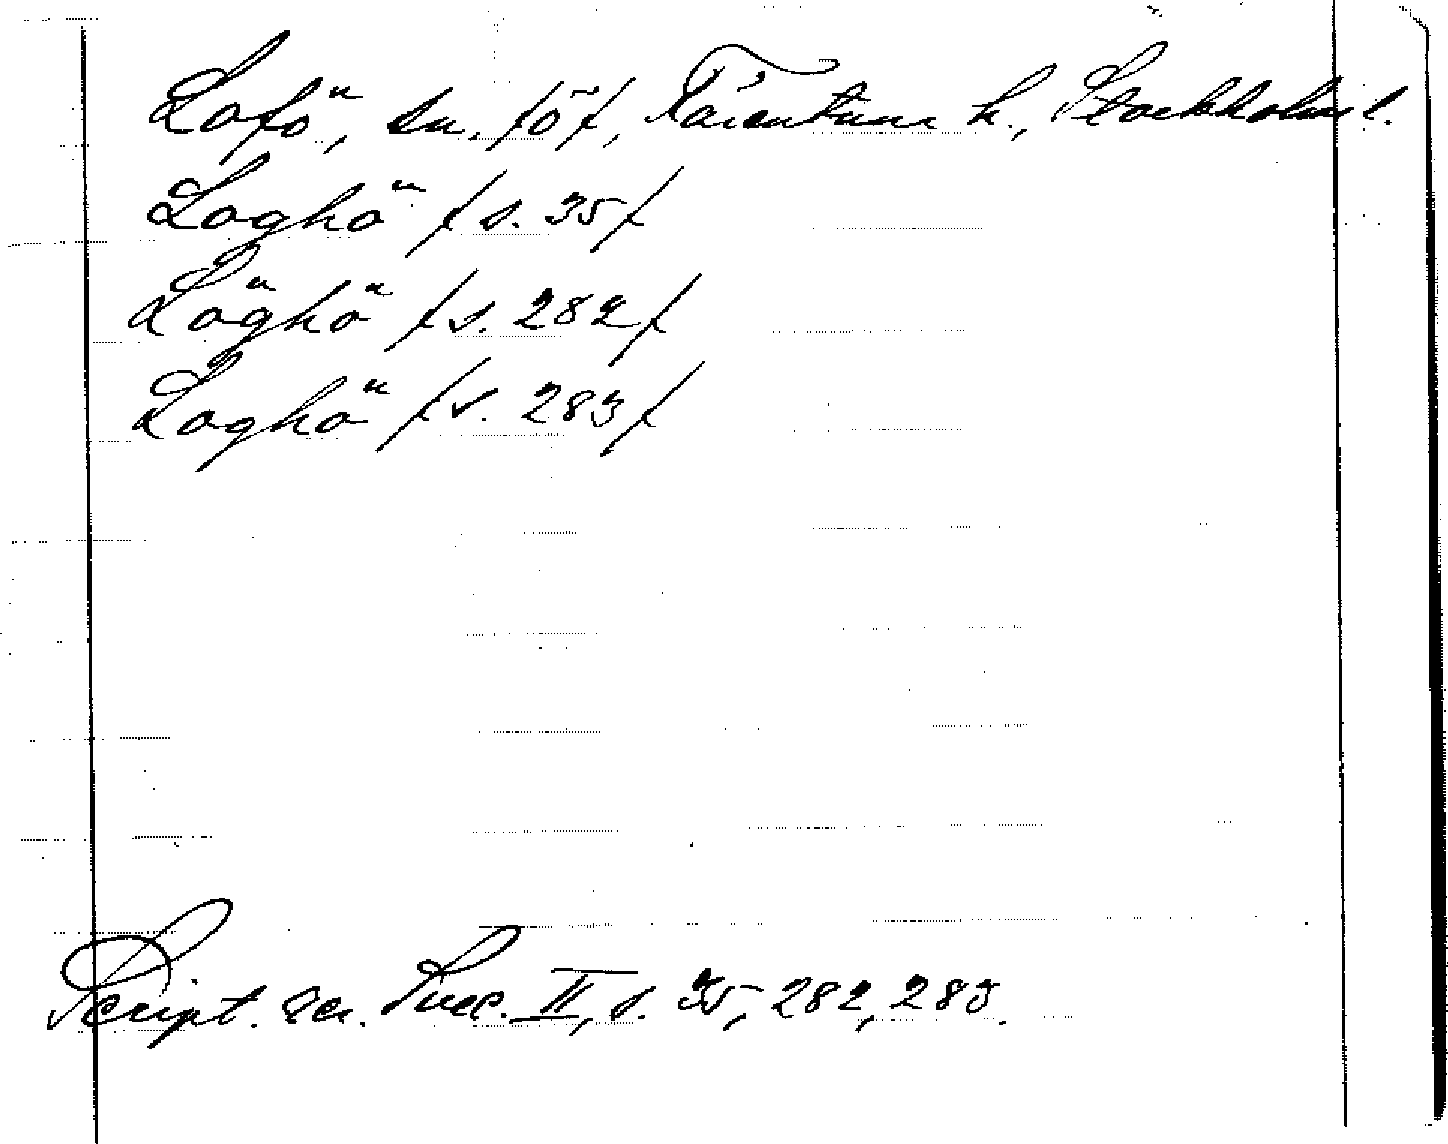 Lofö, sn. /ö/, Färentuna h., Stockholms l.
Loghö /s. 35/
Löghö /s. 282/
Loghö /s. 283/
Script. rer. Suec. II, s. 35, 282, 283.